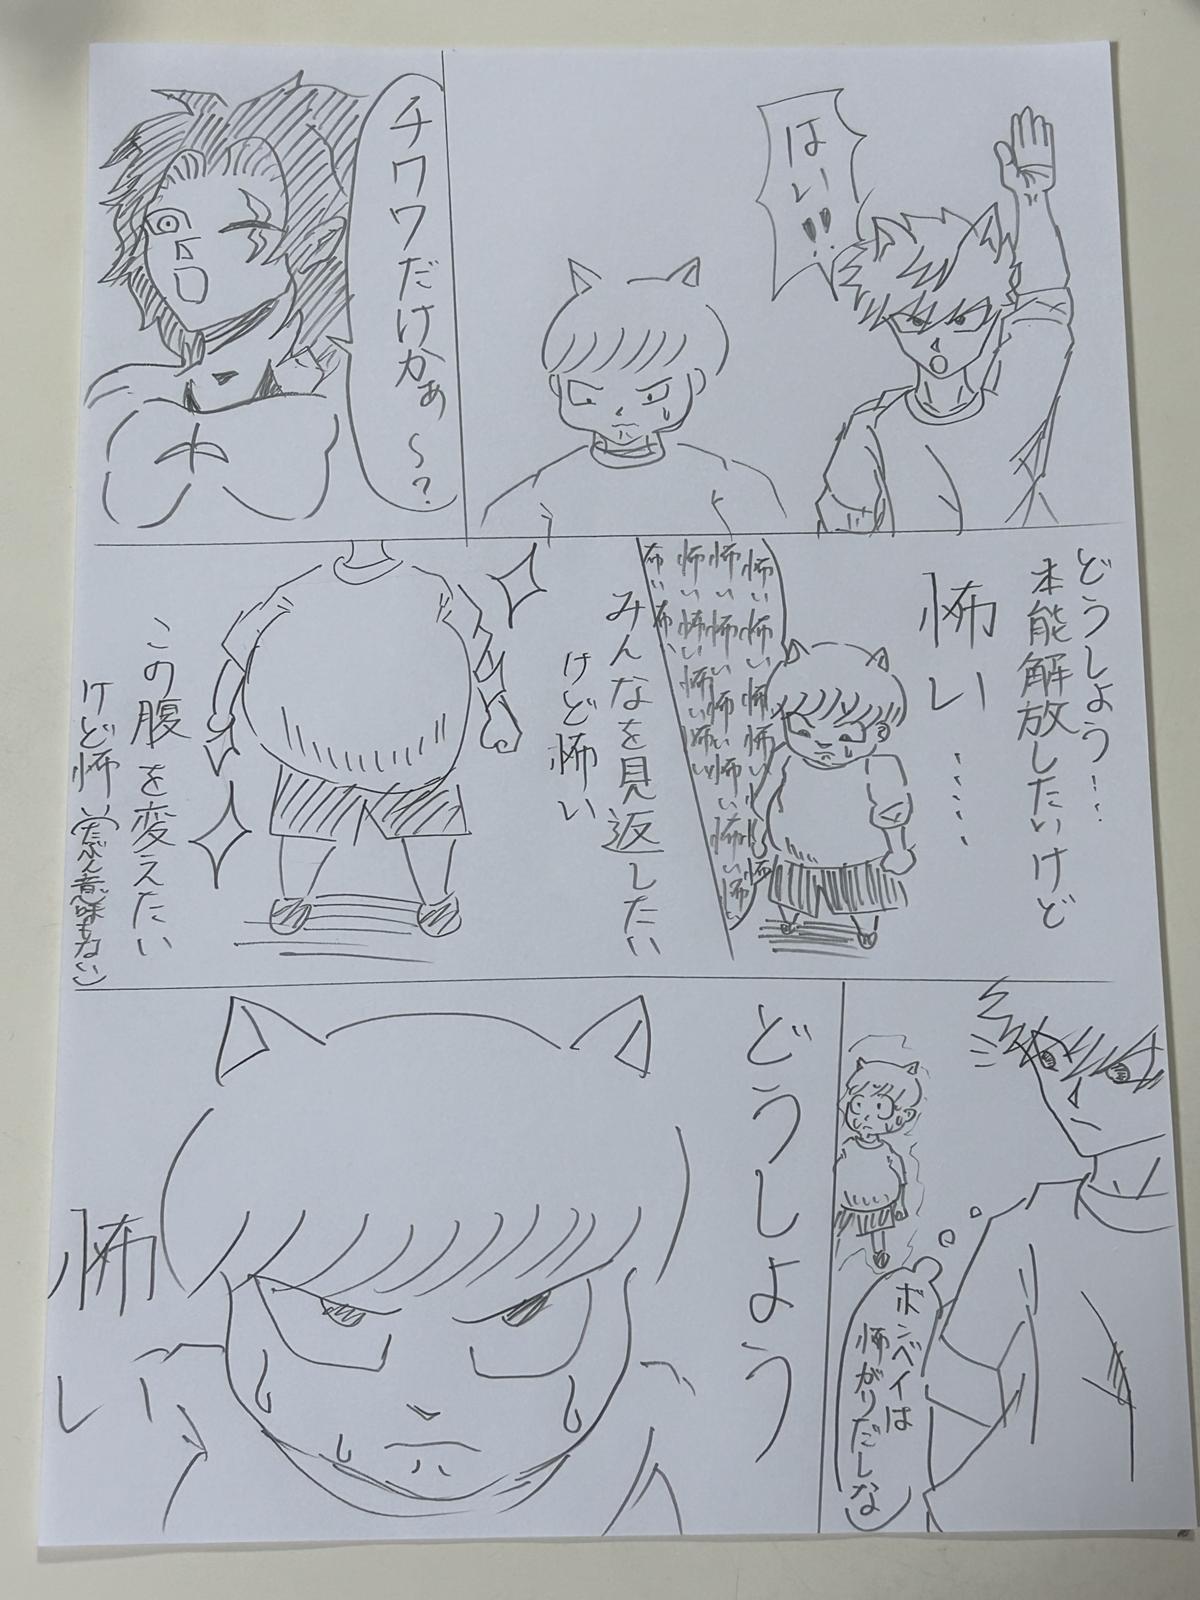 はい!!
チワワだけかぁ〜?
どうしよう…
本能解放したいけど
怖い……
怖い怖い怖い
怖い怖い怖い怖い怖い
怖い怖い怖い怖い
怖い怖
みんなを見返したい
けど怖い
この腹を変えたい
けど怖い(たぶん意味もない)
ボンベイは
怖がりだしな
どうしよう
怖い